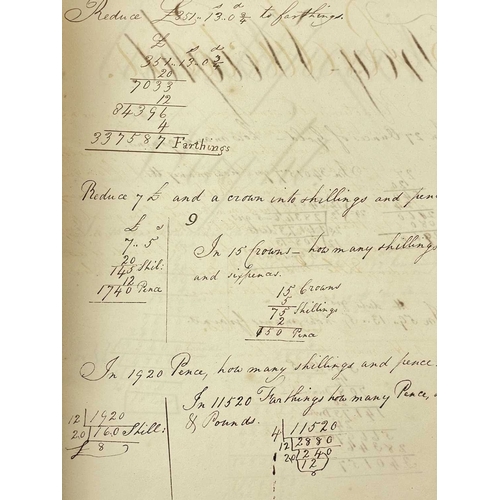 Reduce £351..13..0¾ to farthings.
£ s d
351..13..0¾
20
7033
12
84396
4
337587 Farthings
Reduce 7 £ and a crown into shillings and pence
£ s
7..5
20
145 Shil:
12
1740 Pence
9
In 15 Crowns how many shillings
and sixpences.
15 Crowns
5
75 Shillings
2
150 Pence
In 1920 Pence, how many shillings and pence.
12 1920
20 160 Shill:
£ 8
In 11520 Farthings how many Pence,
& Pounds.
4 11520
12 2880
20 240
12